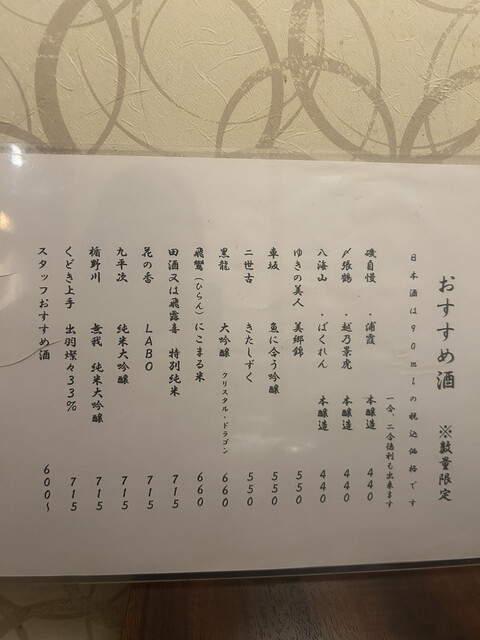 おすすめ酒 ※数量限定
日本酒は90mlの税込価格です
一合、二合徳利も出来ます
磯自慢・浦霞 本醸造 440
〆張鶴・越乃景虎 本醸造 440
八海山・ばくれん 本醸造 440
ゆきの美人 美郷錦 550
車坂 魚に合う吟醸 550
二世古 きたしずく 550
黒龍 大吟醸 クリスタル・ドラゴン 660
飛鸞(ひらん)にこまる米 660
田酒又は飛露喜 特別純米 715
花の香 LABO 715
九平次 純米大吟醸 715
楯野川 無我 純米大吟醸 715
くどき上手 出羽燦々33% 715
スタッフおすすめ酒 600〜